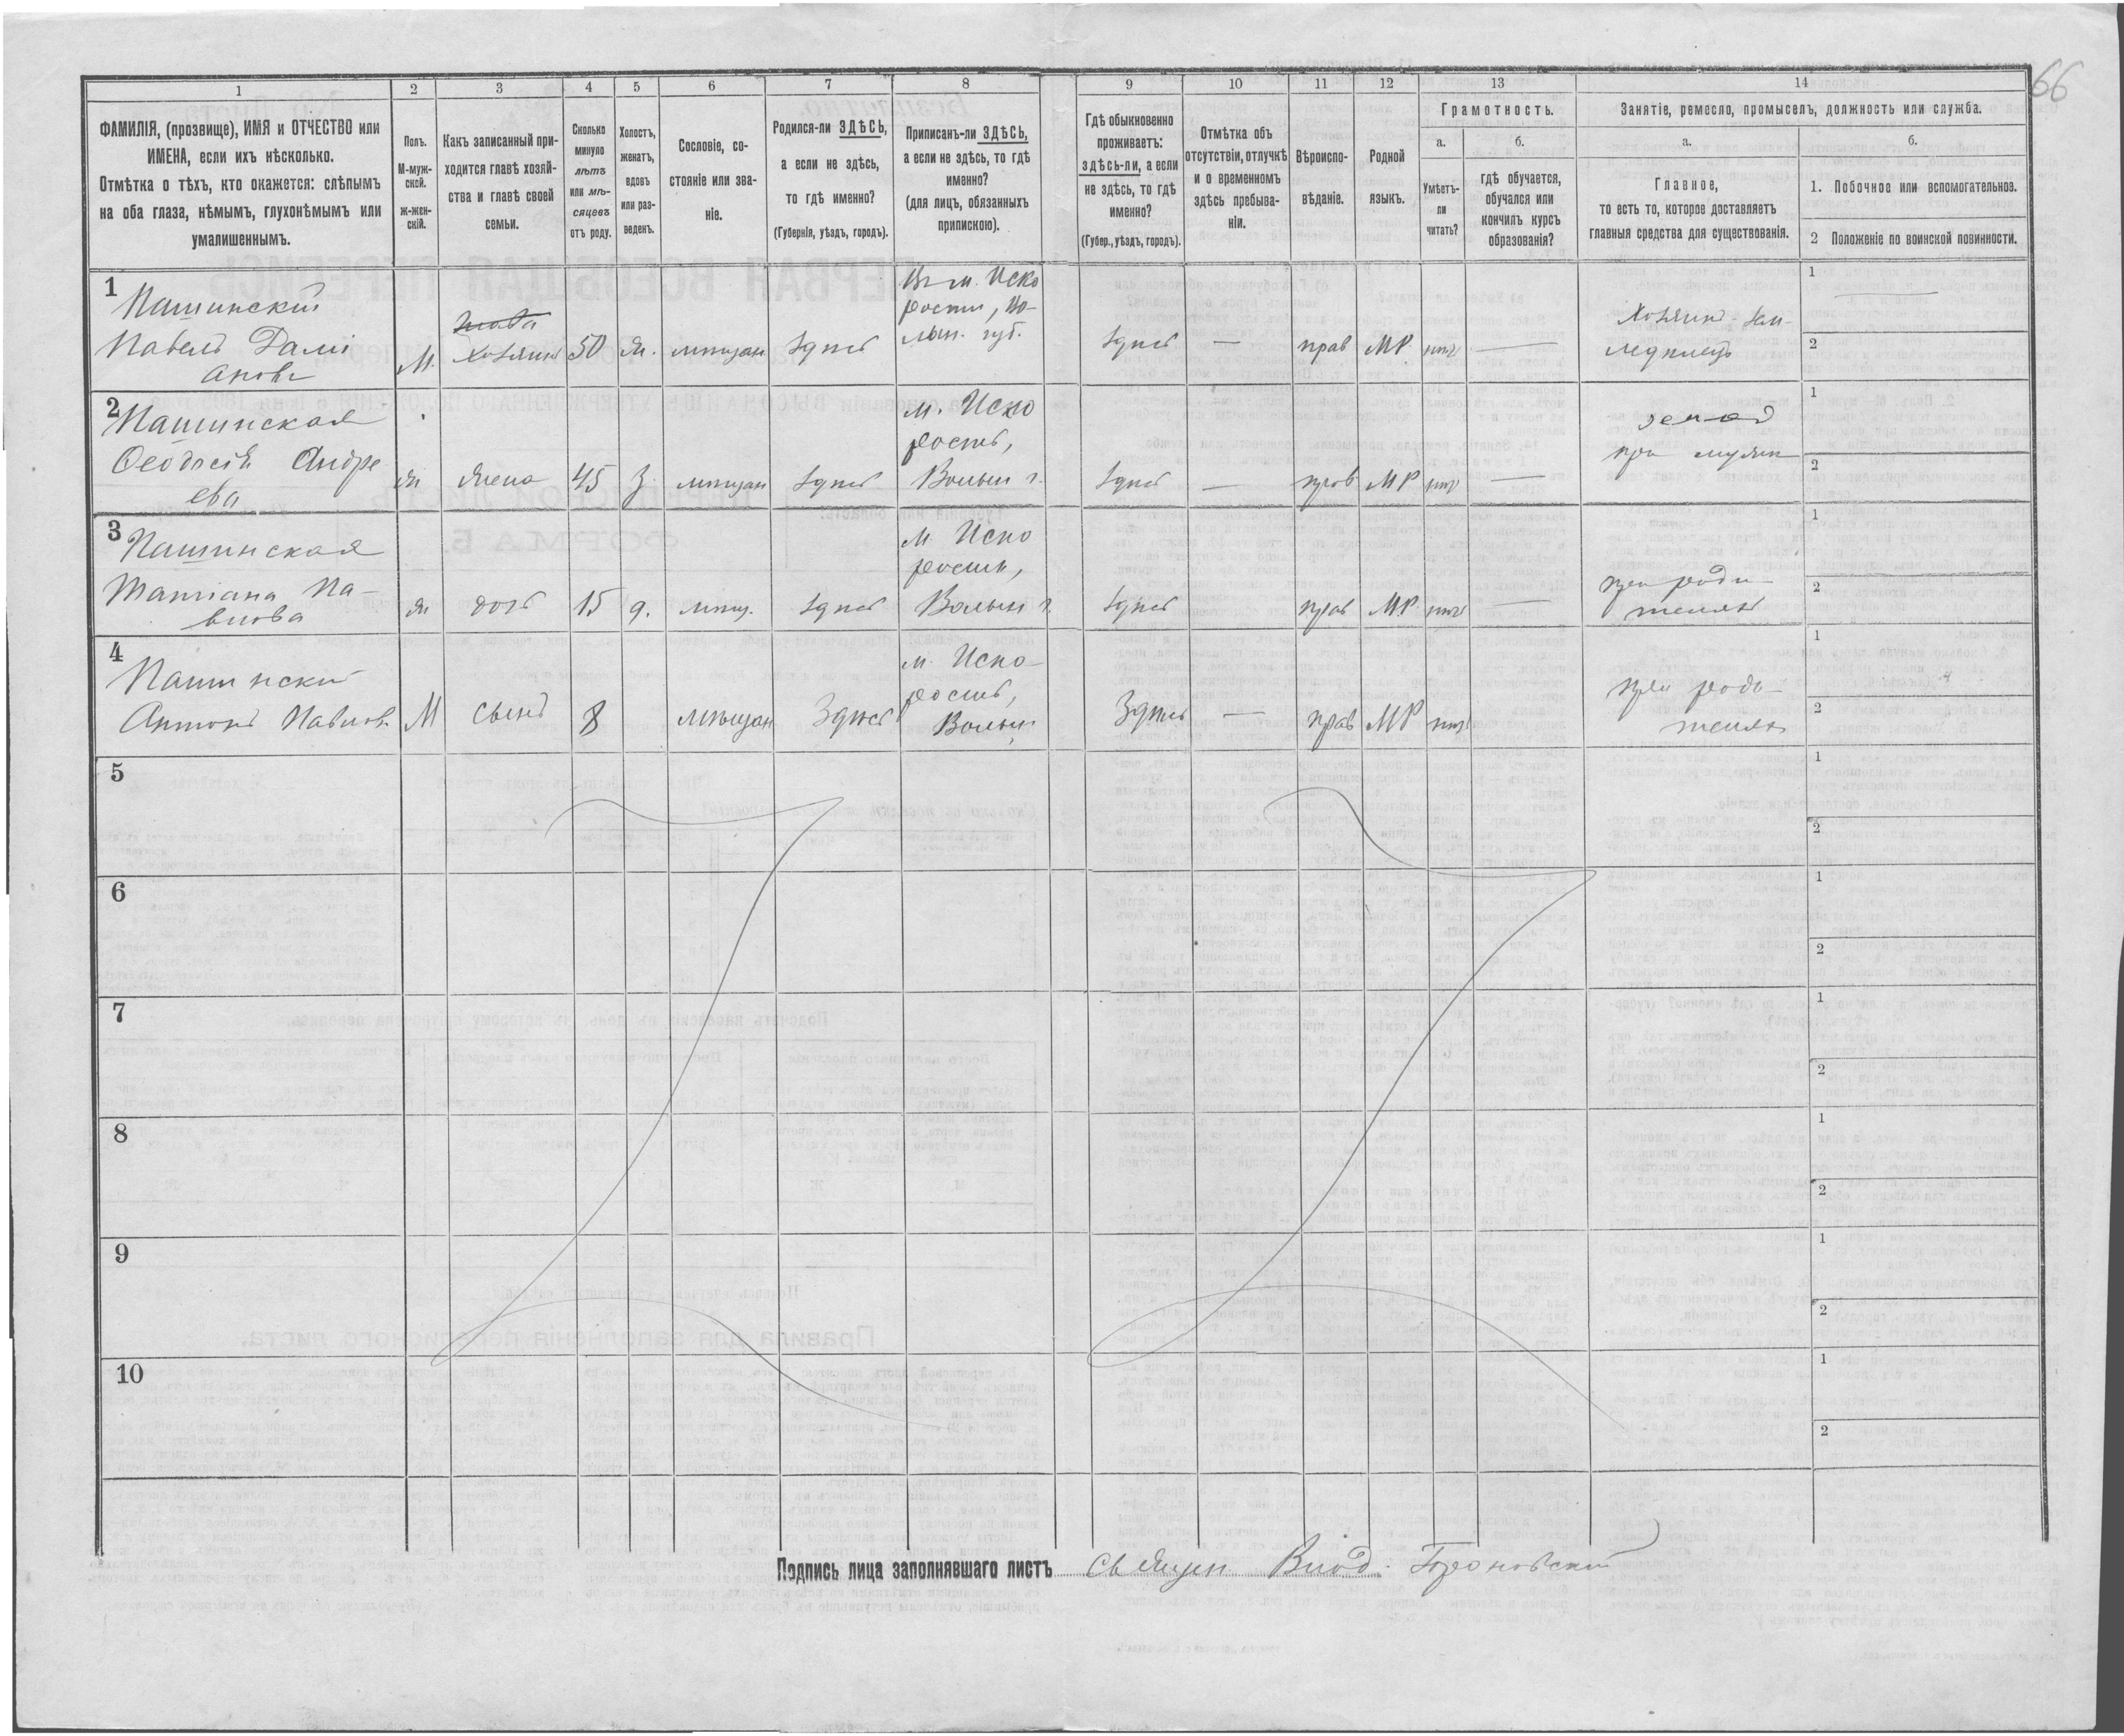 66
1 2 3 4 5 6 7 8 9 10 11 12 13 14
ФАМИЛІЯ, (прозвище), ИМЯ и ОТЧЕСТВО или
ИМЕНА, если ихъ нѣсколько.
Отмѣтка о тѣхъ, кто окажется: слѣпымъ
на оба глаза, нѣмымъ, глухонѣмымъ или
умалишеннымъ.
Полъ.
М-муж-
ской.
ж-жен-
скій.
Какъ записанный при-
ходится главѣ хозяй-
ства и главѣ своей
семьи.
Сколько
минуло
лѣтъ
или мѣ-
сяцевъ
отъ роду.
Холостъ,
женатъ,
вдовъ
или раз-
веденъ.
Сословіе, со-
стояніе или зва-
ніе.
Родился-ли ЗДѢСЬ,
а если не здѣсь,
то гдѣ именно?
(Губернія, уѣздъ, городъ).
Приписанъ-ли ЗДѢСЬ,
а если не здѣсь, то гдѣ
именно?
(для лицъ, обязанныхъ
припискою).
Гдѣ обыкновенно
проживаетъ:
здѣсь-ли, а если
не здѣсь, то гдѣ
именно?
(Губер., уѣздъ, городъ).
Отмѣтка объ
отсутствіи, отлучкѣ
и о временномъ
здѣсь пребыва-
ніи.
Вѣроиспо-
вѣданіе.
Родной
языкъ.
Грамотность.
а.
Умѣетъ-
ли
читать?
б.
гдѣ обучается,
обучался или
кончилъ курсъ
образованія?
Занятіе, ремесло, промыселъ, должность или служба.
а.
Главное,
то есть то, которое доставляетъ
главныя средства для существованія.
б.
1. Побочное или вспомогательное.
2 Положеніе по воинской повинности.
1
Пашинскій
Павелъ Даміановъ
М.
глава
Хозяинъ
50
ж.
мѣщан
Здѣсь
Въ м. Иско
рости, Во-
лын. губ.
Здѣсь
—
прав
МР.
нѣт
—
Хозяинъ зем-
ледѣлецъ
1
2
2
Пашинская
Ѳеодосія Андре
ева
ж
жена
45
з.
мѣщан
Здѣсь
м. Иско
рость,
Волын г.
Здѣсь
—
прав
МР
нѣт
—
при мужѣ
1
2
3
Пашинская
Татіана Па-
влова
ж
дочь
15
д.
мѣщ.
Здѣсь
м Иско
рость,
Волын г.
Здѣсь
прав
МР.
нѣт
—
при роди-
теляхъ
1
2
4
Пашинскій
Антонъ Павлов.
М
сынъ
8
мѣщан
Здѣсь
м. Иско-
рость,
Волын
Здѣсь
—
прав
МР
нѣт
при роди-
теляхъ
1
2
5
1
2
6
1
2
7
1
2
8
1
2
9
1
2
10
1
2
Подпись лица заполнявшаго листъ Священ Влад.